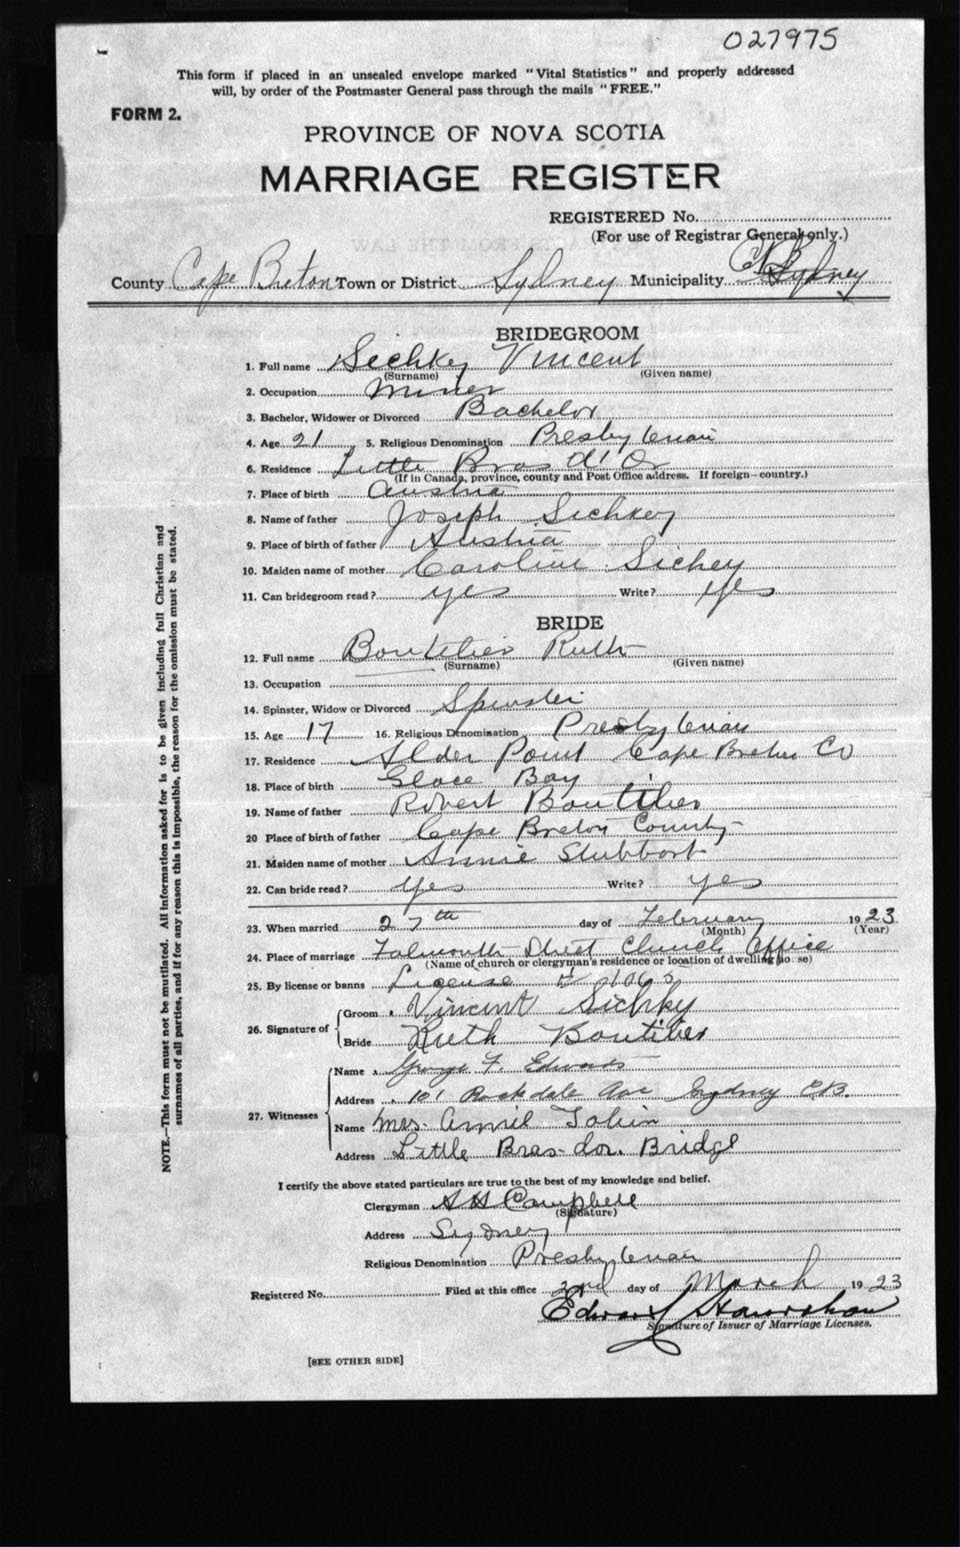 027975
This form if placed in an unsealed envelope marked "Vital Statistics" and properly addressed
will, by order of the Postmaster General pass through the mails "FREE."
FORM 2.
PROVINCE OF NOVA SCOTIA
MARRIAGE REGISTER
REGISTERED No.
(For use of Registrar General only.)
County Cape Breton Town or District Sydney Municipality Sydney
BRIDEGROOM
1. Full name Sichkey Vincent
(Surname) (Given name)
2. Occupation Miner
3. Bachelor, Widower or Divorced Bachelor
4. Age 21 5. Religious Denomination Presbyterian
6. Residence Little Bras d'Or
(If in Canada, province, county and Post Office address. If foreign—country.)
7. Place of birth Austria
8. Name of father Joseph Sichkey
9. Place of birth of father Austria
10. Maiden name of mother Caroline Sichey
11. Can bridegroom read? yes Write? yes
BRIDE
12. Full name Boutilier Ruth
(Surname) (Given name)
13. Occupation
14. Spinster, Widow or Divorced Spinster
15. Age 17 16. Religious Denomination Presbyterian
17. Residence Alder Point Cape Breton Co
18. Place of birth Glace Bay
19. Name of father Robert Boutilier
20 Place of birth of father Cape Breton County
21. Maiden name of mother Annie Stubbort
22. Can bride read? yes Write? yes
23. When married 27th day of February 1923
(Month) (Year)
24. Place of marriage Falmouth Street Church Office
(Name of church or clergyman's residence or location of dwelling house)
25. By license or banns License # 1065
26. Signature of
Groom Vincent Sichky
Bride Ruth Boutilier
27. Witnesses
Name George F. Edwards
Address 101 Rockdale Ave Sydney C.B.
Name Mrs. Annie Tobin
Address Little Bras-dor. Bridge
I certify the above stated particulars are true to the best of my knowledge and belief.
Clergyman A H Campbell
(Signature)
Address Sydney
Religious Denomination Presbyterian
Registered No. Filed at this office 2nd day of March 1923
Edward
Signature of Issuer of Marriage Licenses.
[SEE OTHER SIDE]
NOTE.—This form must not be mutilated. All information asked for is to be given including full Christian and
surnames of all parties, and if for any reason this is impossible, the reason for the omission must be stated.